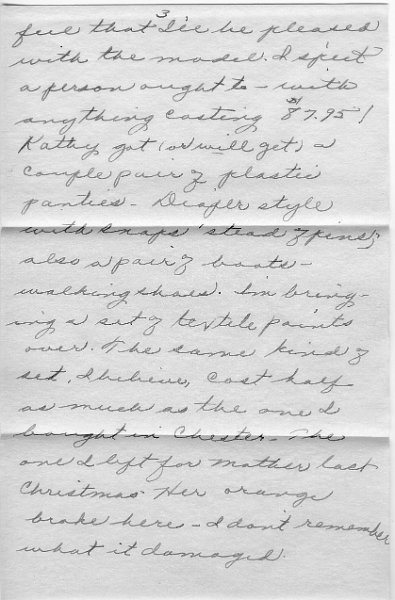 3
feel that I'll be pleased
with the model. I s'pect
a person ought to - with
anything costing $87.95!
Kathy got (or will get) a
couple pair of plastic
panties - Diaper style
with snaps 'stead of pins;
also a pair of boots -
walking shoes. Im bring-
ing a set of textile paints
over. The same kind of
set, I believe, cost half
as much as the one I
bought in Chester - The
one I left for Mother last
Christmas. Her orange
broke here - I don't remember
what it damaged.